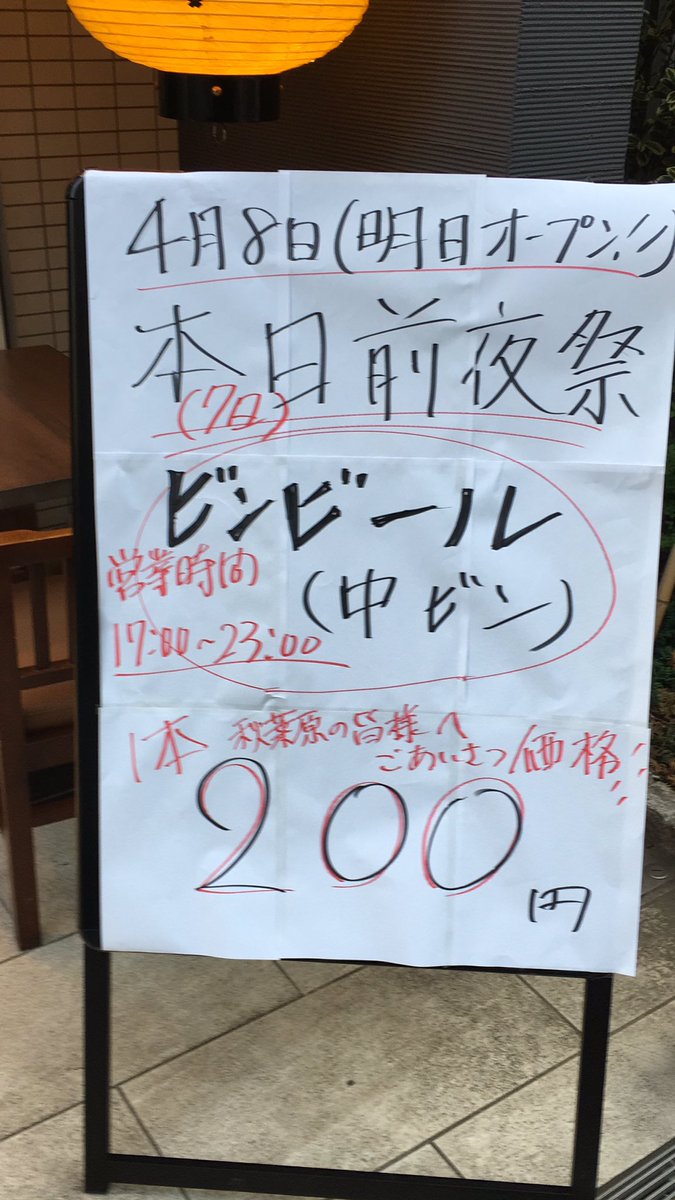 4月8日(明日オープン!!)
本日前夜祭
(7日)
ビンビール
(中ビン)
営業時間
17:00~23:00
1本 秋葉原の皆様へ
ごあいさつ価格!!
200円